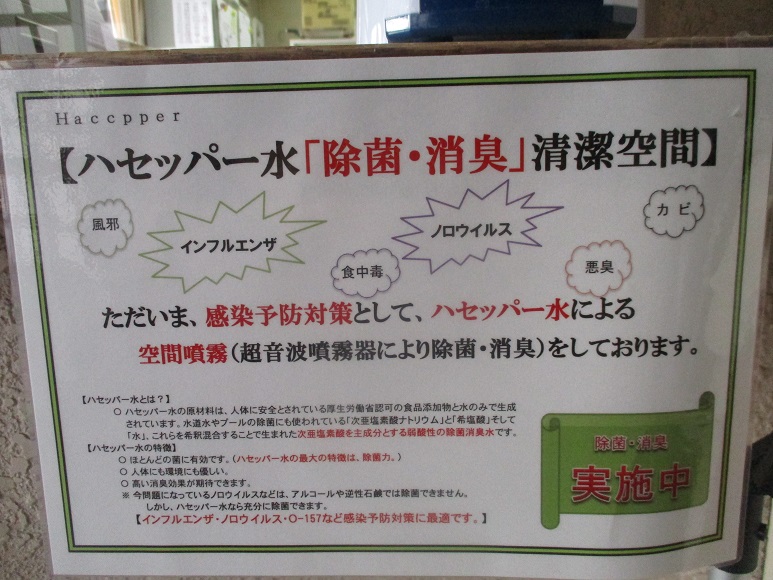 Haccpper
【ハセッパー水「除菌・消臭」清潔空間】
風邪
インフルエンザ
食中毒
ノロウイルス
悪臭
カビ
ただいま、感染予防対策として、ハセッパー水による
空間噴霧（超音波噴霧器により除菌・消臭）をしております。
【ハセッパー水とは？】
○ ハセッパー水の原材料は、人体に安全とされている厚生労働省認可の食品添加物と水のみで生成
されています。水道水やプールの除菌にも使われている「次亜塩素酸ナトリウム」と「希塩酸」そして
「水」、これらを希釈混合することで生まれた次亜塩素酸を主成分とする弱酸性の除菌消臭水です。
【ハセッパー水の特徴】
○ ほとんどの菌に有効です。（ハセッパー水の最大の特徴は、除菌力。）
○ 人体にも環境にも優しい。
○ 高い消臭効果が期待できます。
※ 今問題になっているノロウイルスなどは、アルコールや逆性石鹸では除菌できません。
しかし、ハセッパー水なら充分に除菌できます。
【インフルエンザ・ノロウイルス・O-157など感染予防対策に最適です。】
除菌・消臭
実施中